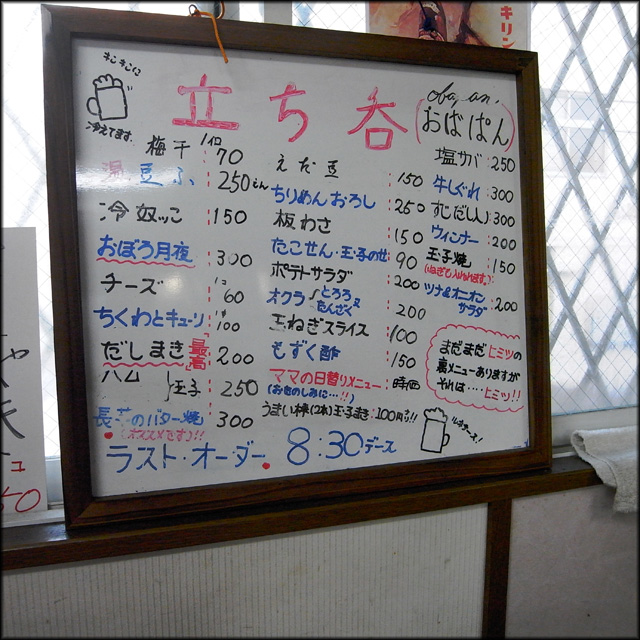 キリン
キンキンに
冷えてます。
立ち呑
oba an.
(おばぱん)
梅干 1コ 70
湯豆ふ 250えん
冷奴ッこ 150
おぼろ月夜 300
チーズ 1コ 60
ちくわとキューリ 100
だしまき 最高 200
ハム 玉子 250
長芋のバター焼 300
(オススメです)!!
えだ豆 150
ちりめんおろし 250
板わさ 150
たこせん・玉子のせ 90
ポテトサラダ 200
オクラ とろろ又たんざく 200
玉ねぎスライス 100
もずく酢 150
ママの日替りメニュー 時価
(おたのしみに…!!)
うまい棒(2本)玉子まき:100円です!!
塩サバ 250
牛しぐれ 300
すじだし 300
ウィンナー 200
玉子焼 150
(ねぎも入れれます。)
ツナ&オニオンサラダ 200
まだまだヒミツの
裏メニューありますが
それは‥‥ヒミツ!!
ラスト・オーダー 8:30デース